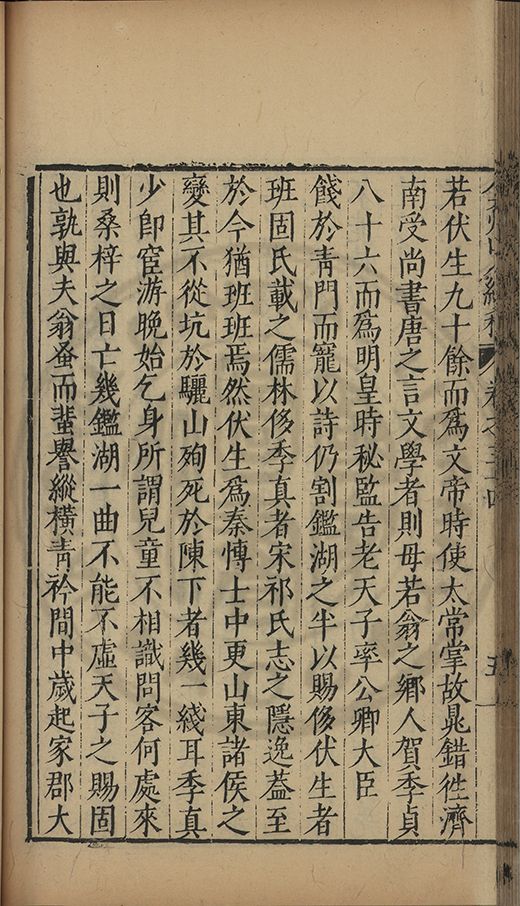 若伏生九十餘而爲文帝時使太常掌故晁錯徃濟
南受尚書唐之言文學者則毋若翁之鄉人賀季貞
八十六而爲明皇時秘監告老天子率公卿大臣
餞於青門而寵以詩仍割鑑湖之半以賜侈伏生者
班固氏載之儒林侈季真者宋祁氏志之隱逸葢至
於今猶班班焉然伏生爲秦愽士中更山東諸侯之
變其不從坑於驪山殉死於陳下者幾一綫耳季真
少卽宦游晩始乞身所謂兒童不相識問客何處來
則桑梓之日亡幾鑑湖一曲不能不虛天子之賜固
也孰與夫翁蚤而蜚譽縱橫青衿間中歲起家郡大